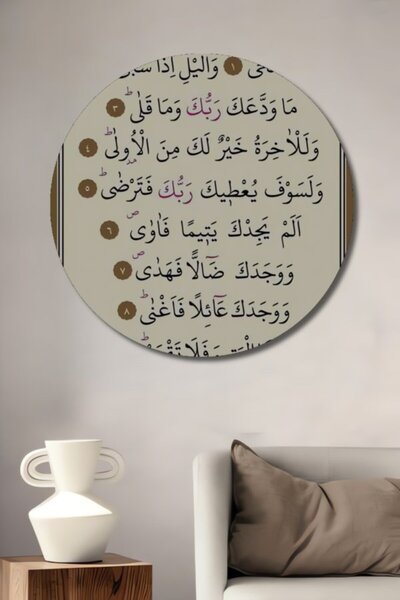 ١ وَالَّيْلِ اِذَا
مَا وَدَّعَكَ رَبُّكَ وَمَا قَلٰىۜ ٣
وَلَلْاٰخِرَةُ خَيْرٌ لَكَ مِنَ الْاُو۫لٰىۜ ٤
وَلَسَوْفَ يُعْط۪يكَ رَبُّكَ فَتَرْضٰىۜ ٥
اَلَمْ يَجِدْكَ يَت۪يمًا فَاٰوٰىۖ ٦
وَوَجَدَكَ ضَٓالًّا فَهَدٰىۖ ٧
وَوَجَدَكَ عَٓائِلًا فَاَغْنٰىۜ ٨
فَلَا